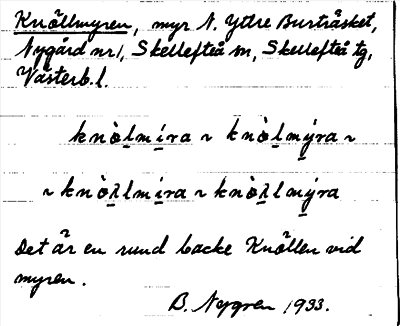 Knöllmyren, myr N. Yttre Bursträsket,
Nygård nr 1, Skellefteå sn, Skellefteå tg,
Västerb. l.
knò̱lmí̱ra ~ knò̱lmý̱ra ~
~ knò̱λlmí̱ra ~ knò̱λlmý̱ra
Det är en rund backe Knöllen vid
myren.
B. Nygren 1933.